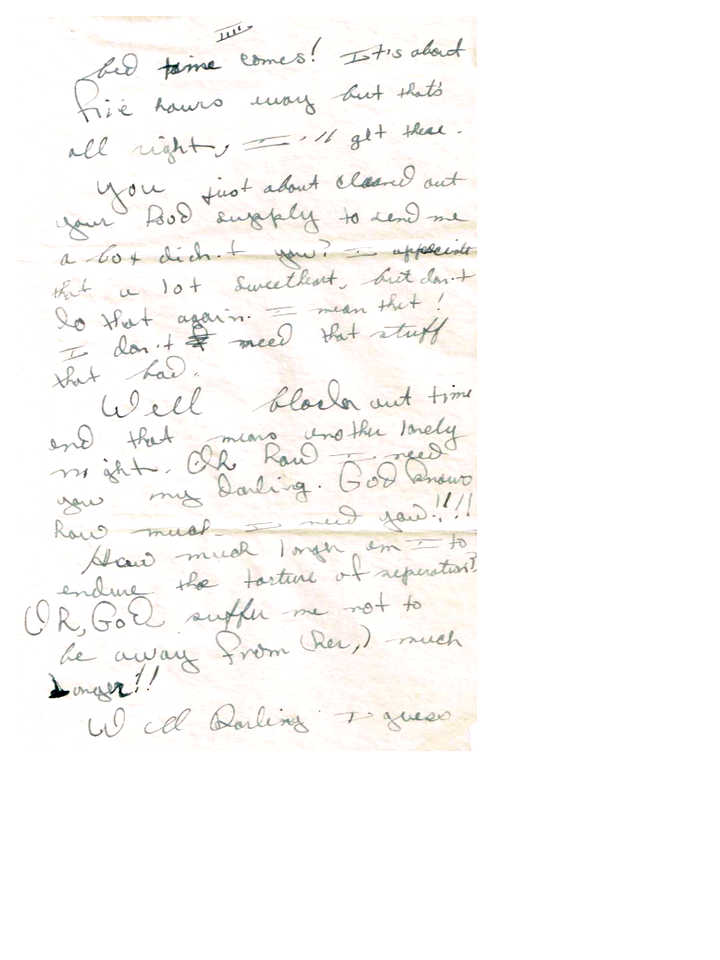 IIII
bed time comes! It's about
five hours away but that's
all right, I'll get there.
You just about cleaned out
your food supply to send me
a box didn't you? I appeciate
that a lot sweetheart, but don't
do that again. I mean that!
I don't need that stuff
that bad.
Well blackout time
and that means another lonely
night. Oh how I need
you my Darling. God knows
how much I need you!!!!
How much longer am I to
endure the torture of seperation?
Oh, God suffer me not to
be away from (her,) much
Longer!!
Well Darling I guess